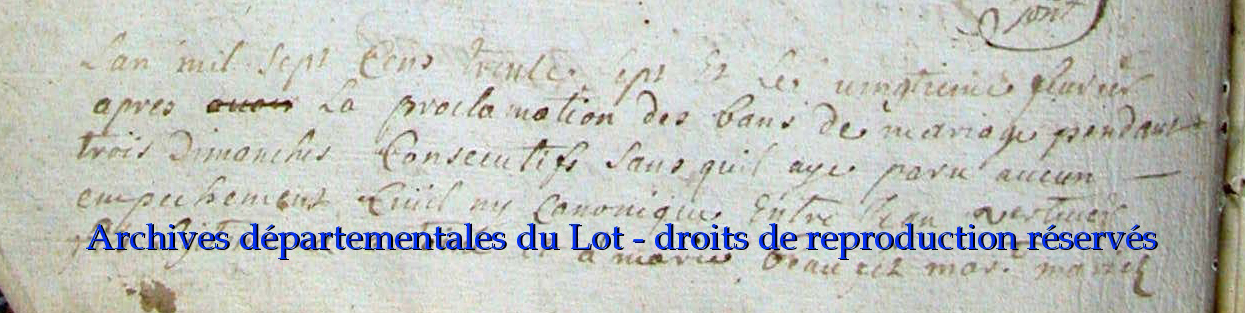 sont
Lan mil sept cens trente sept et le vingtieme fevrier
apres avoir la proclamation des bans de mariage pendant
trois dimanches consecutifs sans quil aye paru aucun
empechement civil ny canonique entre Jean
Archives départementales du Lot - droits de reproduction réservés
a marie